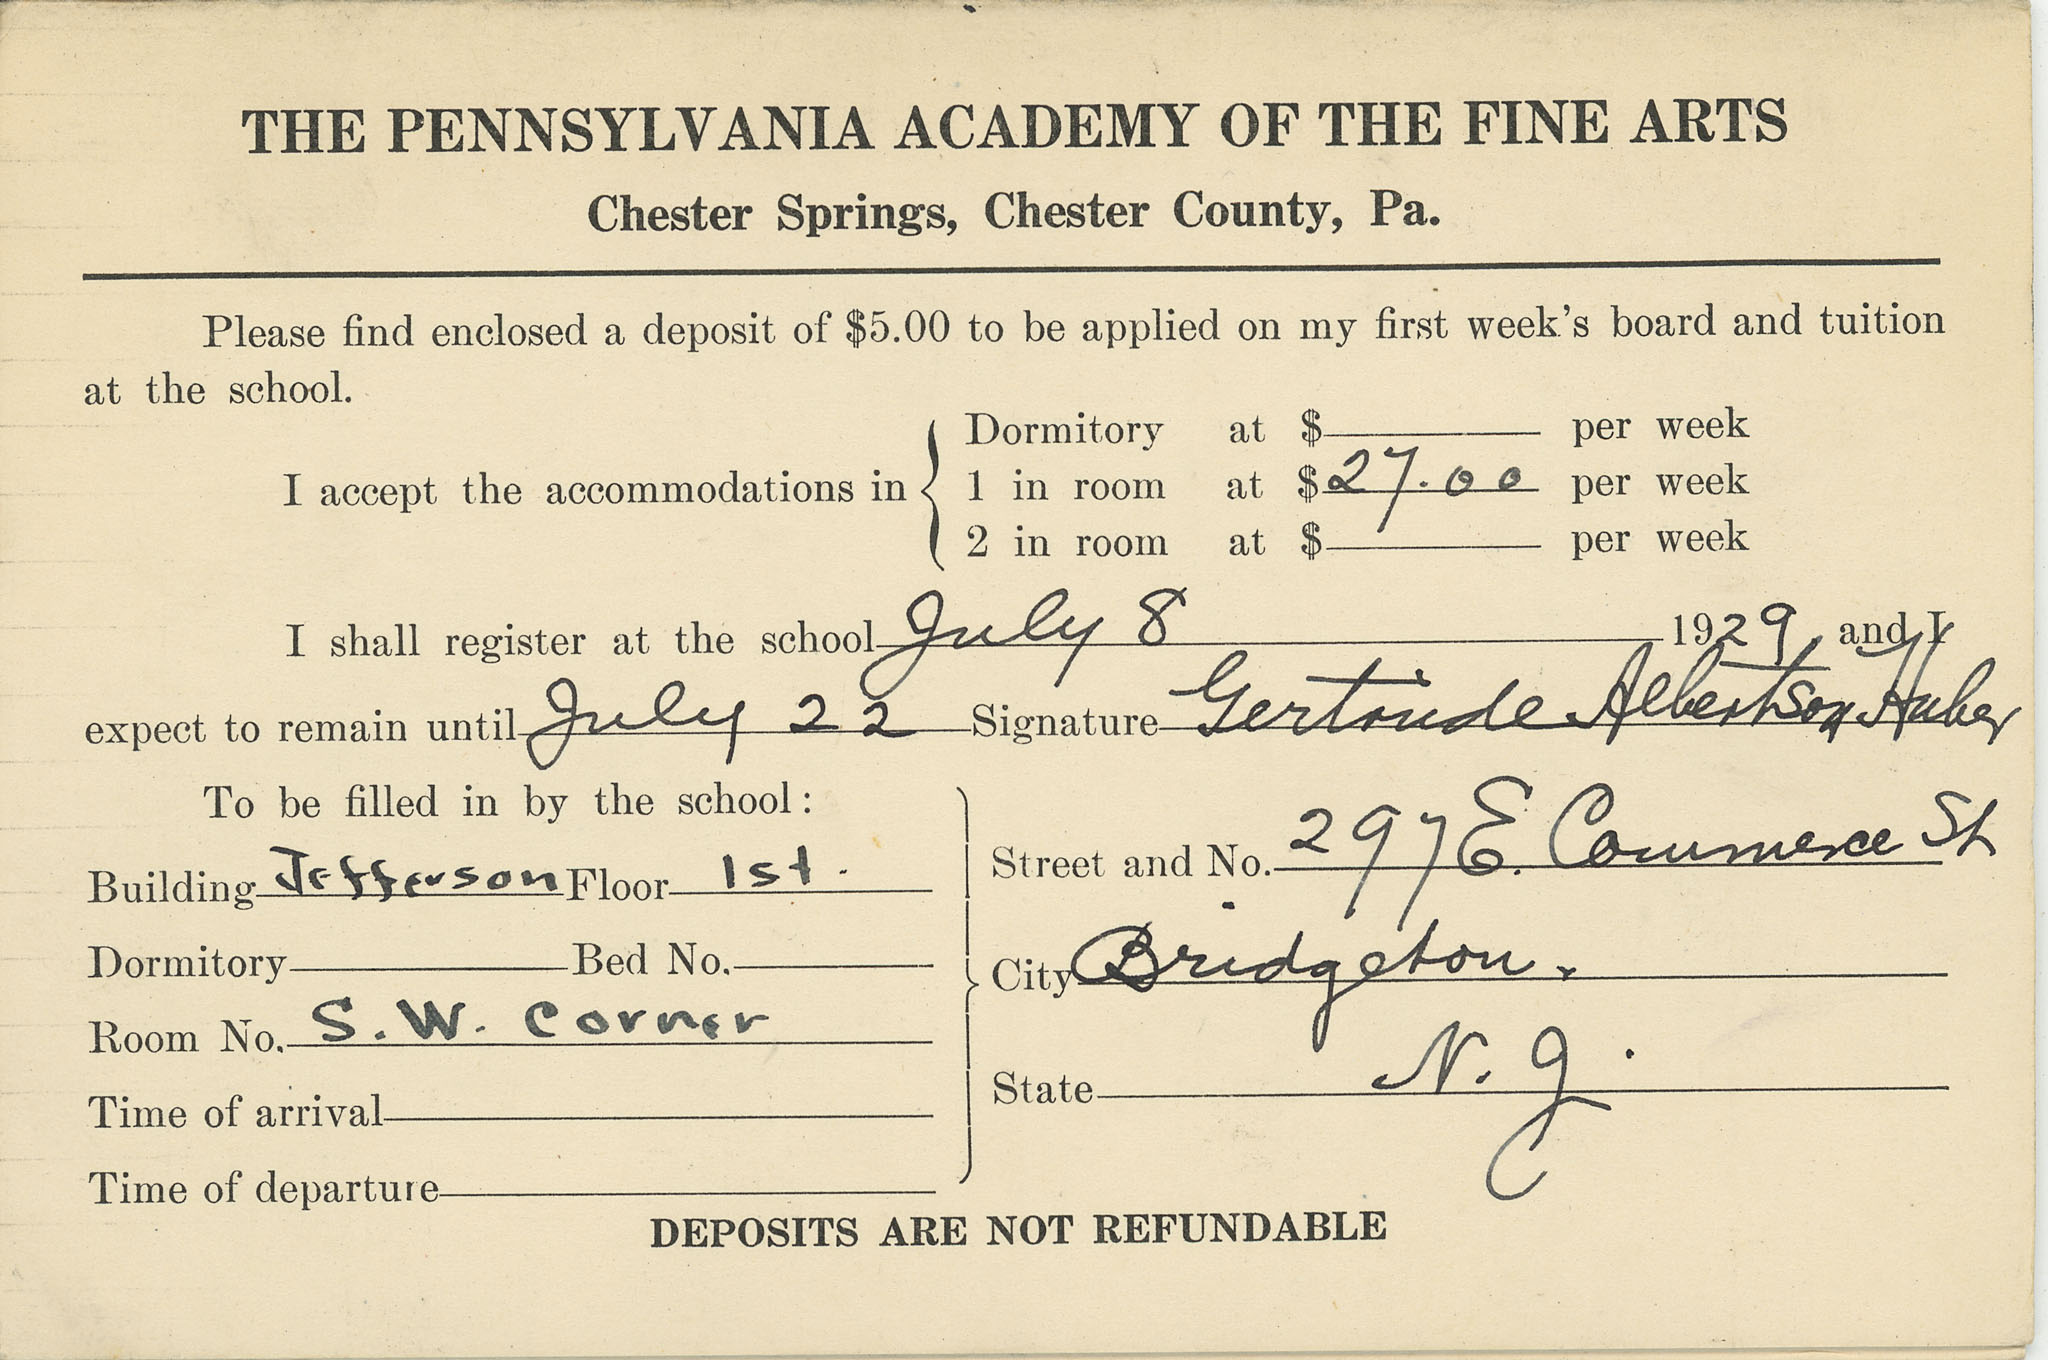 THE PENNSYLVANIA ACADEMY OF THE FINE ARTS
Chester Springs, Chester County, Pa.
Please find enclosed a deposit of $5.00 to be applied on my first week's board and tuition
at the school.
Dormitory at $ per week
I accept the accommodations in { 1 in room at $27.00 per week
2 in room at $ per week
I shall register at the school July 8 1929, and I
expect to remain until July 22 Signature Gertrude Albertson Huber
To be filled in by the school:
Building Jefferson Floor 1st.
Dormitory Bed No.
Room No. S.W. Corner
Time of arrival
Time of departure
Street and No. 297 E. Commerce St
City Bridgeton.
State N. J.
DEPOSITS ARE NOT REFUNDABLE